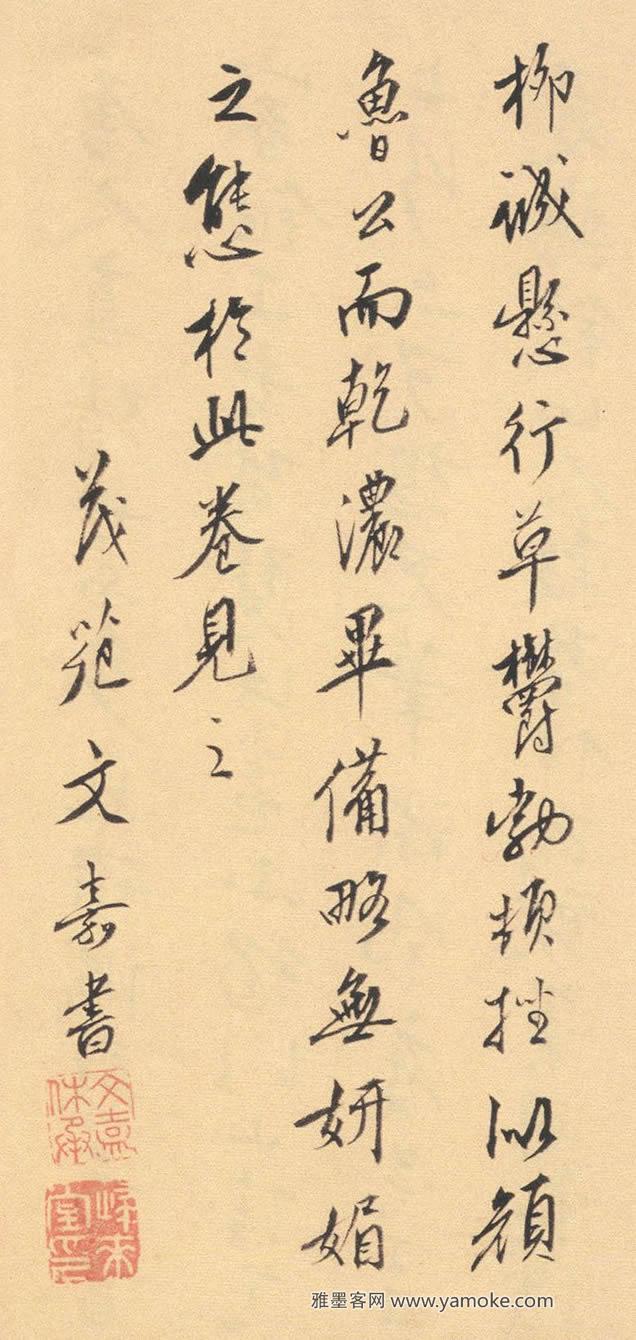 柳誠懸行草鬱勃頓挫似顏
魯公而乾濃畢備略無妍媚
之態於此卷見之
茂苑文嘉書
文嘉
休承
雅墨客网 www.yamoke.com